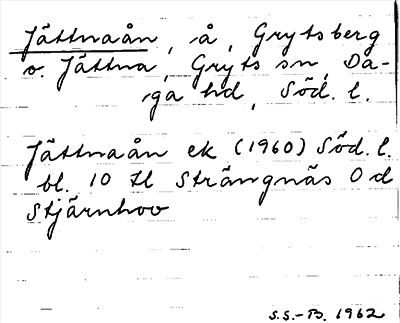 Jättnaån, å, Grytsberg
o. Jättna, Gryts sn, Da-
ga hd, Söd. l.
Jättnaån ek (1960) Söd. l.
bl. 10 H Strängnäs 0 d
Stjärnhov
S.S.-B. 1962